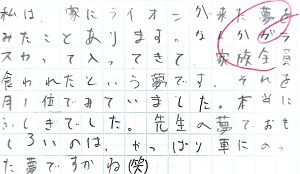 私は 家にライオンが来た夢
みたことあります。なんかガラ
スわって入ってきて 家族全員
食われたという夢です。それを
月1位でみていました。本当に
ふしぎでした。先生の夢でおも
しろいのは、やっぱり車にのっ
た夢ですかね(笑)